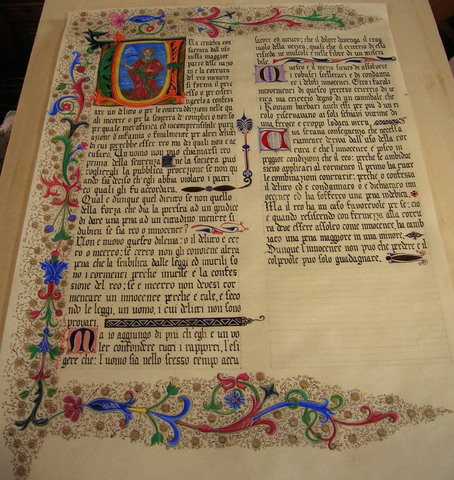 Una crudeltà con
sacrata dall uso
nella maggior
parte delle nazio
ni è la tortura
del reo mentre
si forma il proc
esso o per costri
ngerlo a confess
are un delitto o per le contraddizioni nelle qu
ali incorre o per la scoperta di complici o non so
per quale metafisica ed incomprensibile purg
azione d infamia o finalmente per altri delitti
di cui potrebbe esser reo ma dei quali non è a
ccusato. Un uomo non può chiamarsi reo
prima della sentenza ne la società può
togliergli la pubblica protezione se non qu
ando sia deciso ch egli abbia violato i patti
co quali gli fu accordata.
Quale è dunque quel diritto se non quello
della forza che dia la potestà ad un giudice
di dare una pena ad un cittadino mentre si
dubita se sia reo o innocente?
Non è nuovo questo dilema: o il delito è cer
to o incerto; se certo non gli conviene altra
pena che la stabilita dalle leggi ed inutili so
no i tormenti perche inutile è la confes
sione del reo; se è incerto non devesi tor
mentare un innocente perche è tale, e seco
ndo le leggi, un uomo, i cui delitti non sono
provati.
Ma io aggiungo di più ch egli è un vo
ler confondere tutti i rapporti, l esi
gere che l uomo sia nello stesso tempo accu
satore ed accuto; che il dolore divenga il crog
iuolo della verità, quasi che il criterio di essa
risieda ne muscoli e nelle fibre di un misera
bile. Questo è il mezzo sicuro di assolvere
i robusti scellerati e di condanna
re i deboli innocenti. Ecco i fatali
inconvenienti di questo preteso criterio di ve
rità ma criterio degno di un cannibale che
i Romani barbari anch essi per più d un ti
tolo riservavano ai soli schiavi vittime di
una feroce e troppo lodata virtù.
Una strana conseguenza che necessa
riamente deriva dall uso della tor
tura è che l innocente è posto in
peggiore condizione che il reo; perche se ambidue
sieno applicati al tormento il primo ha tutte
le combinazioni contrarie; perche o confessa
il delitto ed è condannato o è dichiarato inn
ocente ed ha sofferto una pena indebita.
Ma il reo ha un caso favorevole per se; cio
è quando resistendo con fermezza alla tortu
ra deve essere assolto come innocente, ha camb
iato una pena maggiore in una minore.
Dunque l innocente non può che perdere e il
colpevole può solo guadagnare.